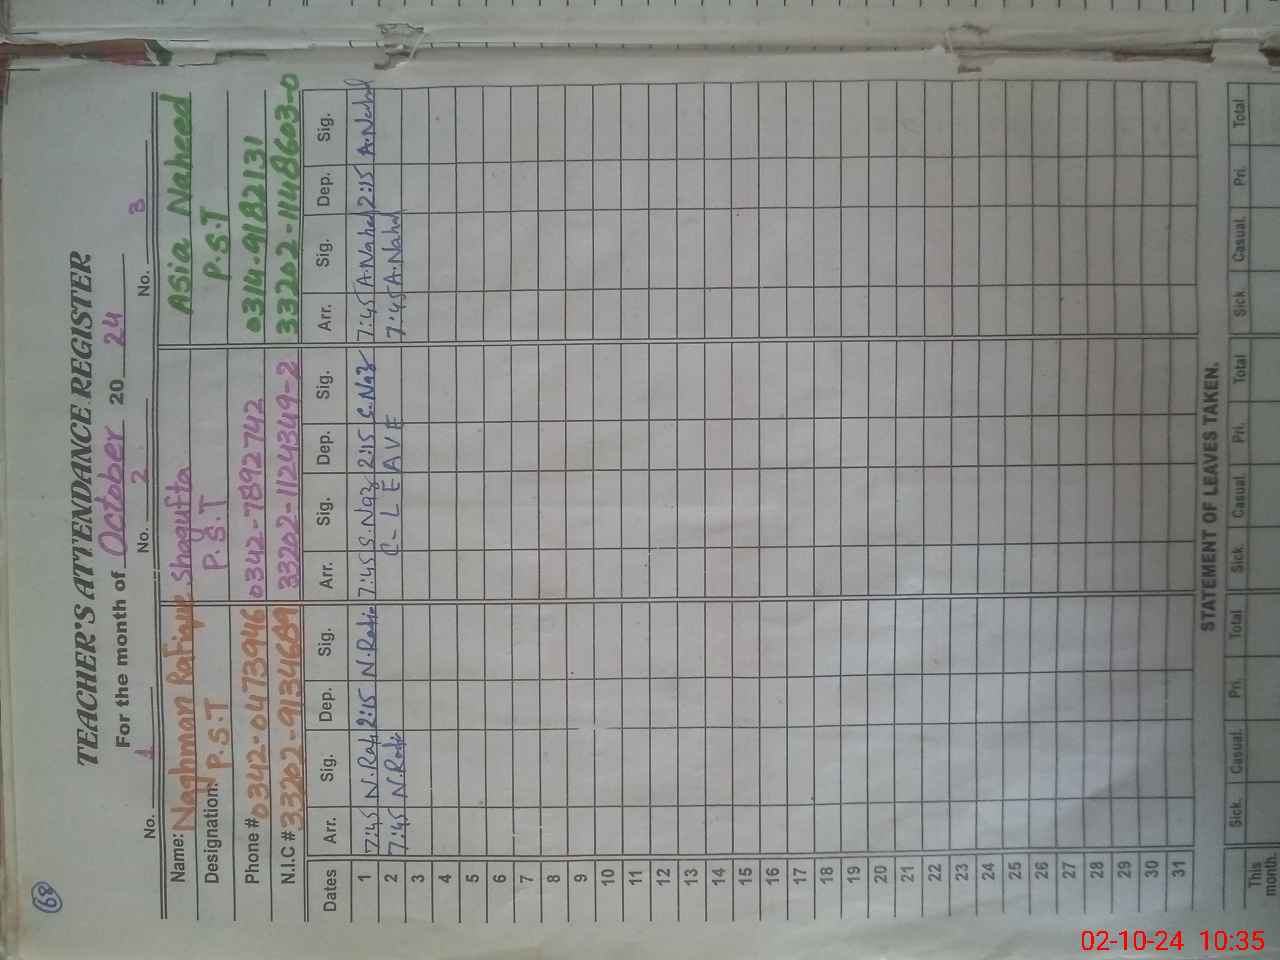 68
TEACHER'S ATTENDANCE REGISTER
For the month of October 20 24
No. 1 No. 2 No. 3
Name: Naghman Rafique Shagufta Asia Naheed
Designation: P.S.T P.S.T P.S.T
Phone # 0342-0473946 0342-7892742 0314-9182131
N.I.C # 33202-9134689 33202-1124349-2 33202-1148603-0
Dates Arr. Sig. Dep. Sig. Arr. Sig. Dep. Sig. Arr. Sig. Dep. Sig.
1 7:45 N.Rafi 2:15 N.Rafi 7:45 S.Naz 2:15 S.Naz 7:45 A.Nahed 2:15 A.Nahd
2 7:45 N.Rafi C-LEAVE 7:45 A.Nahd
3
4
5
6
7
8
9
10
11
12
13
14
15
16
17
18
19
20
21
22
23
24
25
26
27
28
29
30
31
STATEMENT OF LEAVES TAKEN.
Sick. Casual. Pri. Total Sick. Casual. Pri. Total Sick. Casual. Pri. Total
This
month.
02-10-24 10:35